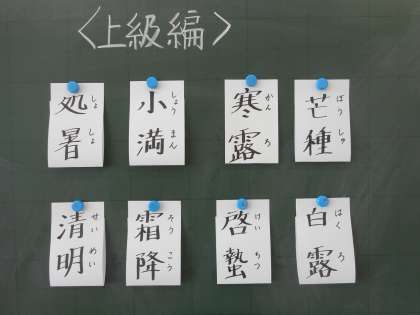 〈上級編〉
処暑 しょしょ
小満 しょうまん
寒露 かんろ
芒種 ぼうしゅ
清明 せいめい
霜降 そうこう
啓蟄 けいちつ
白露 はくろ